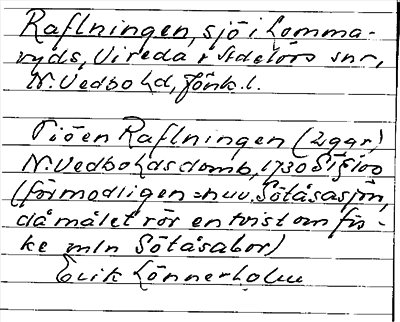 Raflningen, sjö i Lomma-
ryds, Vireda o Adelövs snr,
N. Vedbo hd, Jönk. l.
Siöen Raflningen (2 ggr)
N. Vedbo hds domb, 1730
(förmodligen = nuv. Sötåsasjön,
då målet rör en tvist om fis-
ke mln Sötåsabor)
Erik Lönnerholm